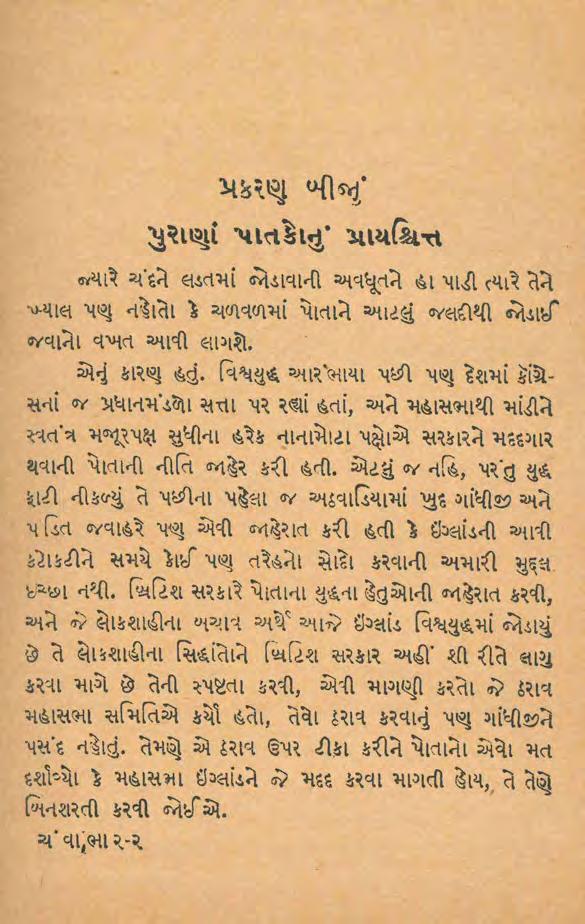 પ્રકરણ બીજું
પુરાણાં પાતકોનું પ્રાયશ્ચિત્ત
જ્યારે ચંદને લડતમાં જોડાવાની અવધૂતને હા પાડી ત્યારે તેને
ખ્યાલ પણ નહોતો કે ચળવળમાં પોતાને આટલું જલદીથી જોડાઈ
જવાનો વખત આવી લાગશે.
એનું કારણ હતું. વિશ્વયુદ્ધ આરંભાયા પછી પણ દેશમાં કૉંગ્રે-
સનાં જ પ્રધાનમંડળો સત્તા પર રહ્યાં હતાં, અને મહાસભાથી માંડીને
સ્વતંત્ર મજૂરપક્ષ સુધીના હરેક નાનામોટા પક્ષોએ સરકારને મદદગાર
થવાની પોતાની નીતિ જાહેર કરી હતી. એટલું જ નહિ, પરંતુ યુદ્ધ
ફાટી નીકળ્યું તે પછીના પહેલા જ અઠવાડિયામાં ખુદ ગાંધીજી અને
પંડિત જવાહરે પણ એવી જાહેરાત કરી હતી કે ઇંગ્લાંડની આવી
કટોકટીને સમયે કોઈ પણ તરેહનો સોદો કરવાની અમારી મુદ્દલ
ઇચ્છા નથી. બ્રિટિશ સરકારે પોતાના યુદ્ધના હેતુઓની જાહેરાત કરવી,
અને જે લોકશાહીના બચાવ અર્થે આજે ઇંગ્લાંડ વિશ્વયુદ્ધમાં જોડાયું
છે તે લોકશાહીના સિદ્ધાંતોને બ્રિટિશ સરકાર અહીં શી રીતે લાગુ
કરવા માગે છે તેની સ્પષ્ટતા કરવી, એવી માગણી કરતો જે ઠરાવ
મહાસભા સમિતિએ કર્યો હતો, તેવો ઠરાવ કરવાનું પણ ગાંધીજીને
પસંદ નહોતું. તેમણે એ ઠરાવ ઉપર ટીકા કરીને પોતાનો એવો મત
દર્શાવ્યો કે મહાસભા ઇંગ્લાંડને જે મદદ કરવા માગતી હોય, તે તેણે
બિનશરતી કરવી જોઈએ.
ચં વા,ભા ૨-૨